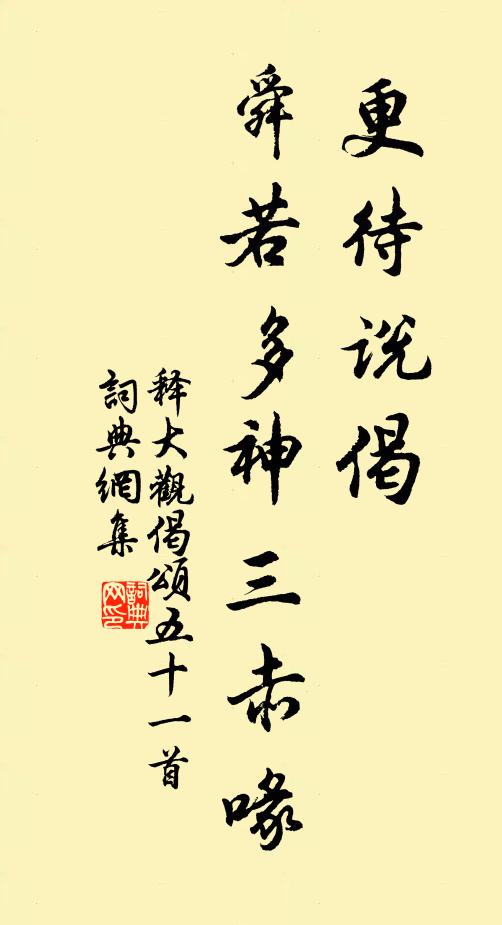 更待说偈
舜若多神三赤喙
释大觀偈頌五十一首
詞典網集
詞典网印